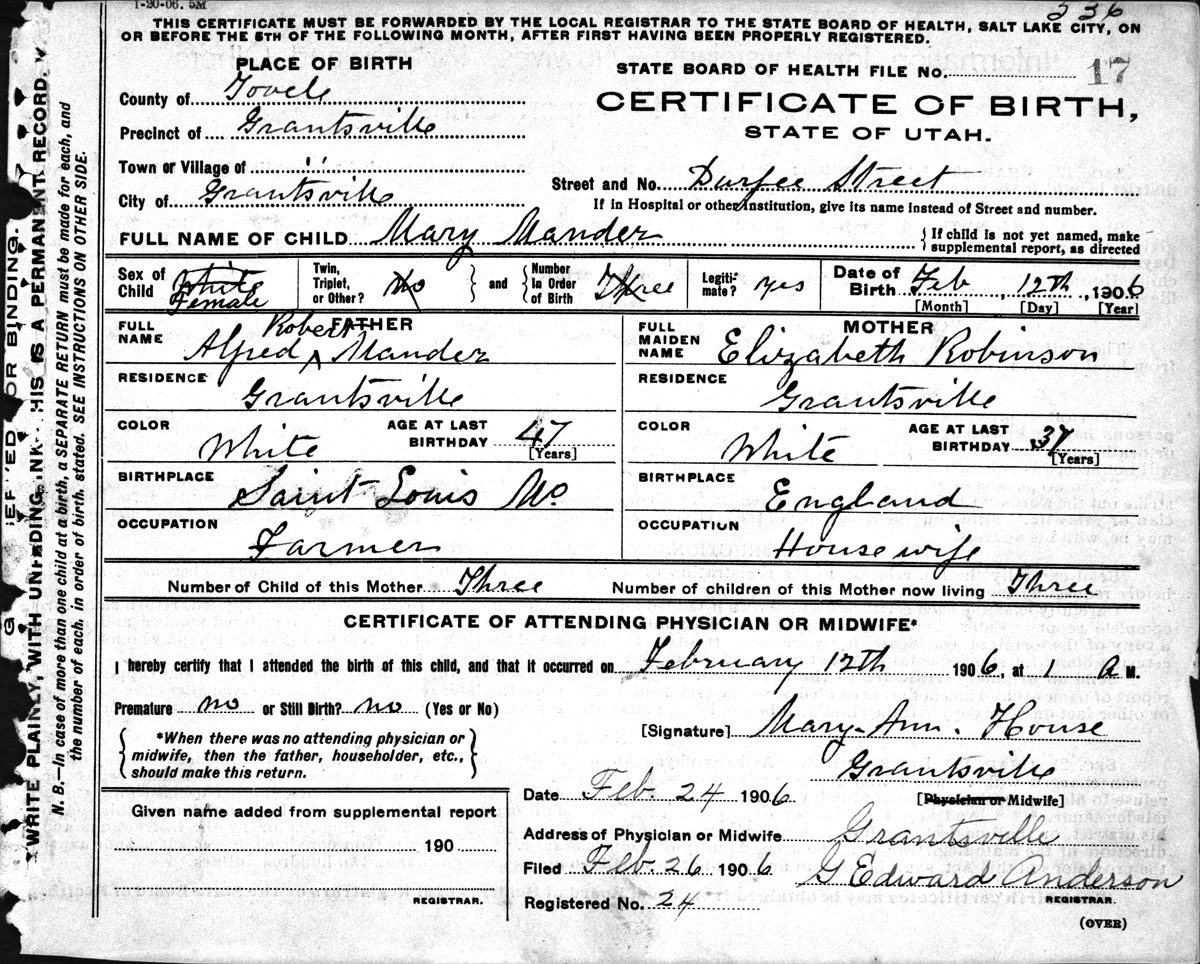 1-20-06. 5M
336
THIS CERTIFICATE MUST BE FORWARDED BY THE LOCAL REGISTRAR TO THE STATE BOARD OF HEALTH, SALT LAKE CITY, ON
OR BEFORE THE 5TH OF THE FOLLOWING MONTH, AFTER FIRST HAVING BEEN PROPERLY REGISTERED.
PLACE OF BIRTH
County of Tooele
Precinct of Grantsville
Town or Village of "
City of Grantsville
STATE BOARD OF HEALTH FILE NO. 17
CERTIFICATE OF BIRTH,
STATE OF UTAH.
Street and No. Durfee Street
If in Hospital or other Institution, give its name instead of Street and number.
FULL NAME OF CHILD Mary Mander
{ If child is not yet named, make
supplemental report, as directed
Sex of Child White Female
Twin, Triplet, or Other? No } and { Number In Order of Birth Three
Legiti-mate? yes
Date of Birth Feb, 12th, 1906
[Month] [Day] [Year]
FATHER
FULL NAME Alfred Robert Mander
RESIDENCE Grantsville
COLOR White AGE AT LAST BIRTHDAY 47 [Years]
BIRTHPLACE Saint Louis Mo
OCCUPATION Farmer
MOTHER
FULL MAIDEN NAME Elizabeth Robinson
RESIDENCE Grantsville
COLOR White AGE AT LAST BIRTHDAY 37 [Years]
BIRTHPLACE England
OCCUPATION Housewife
Number of Child of this Mother Three Number of children of this Mother now living Three
CERTIFICATE OF ATTENDING PHYSICIAN OR MIDWIFE*
I hereby certify that I attended the birth of this child, and that it occurred on February 12th 1906, at 1 A M.
Premature no or Still Birth? no (Yes or No)
{ *When there was no attending physician or
midwife, then the father, householder, etc.,
should make this return. }
[Signature] Mary-Ann. House
Grantsville
[Physician or Midwife]
Date Feb. 24 1906
Address of Physician or Midwife Grantsville
Filed Feb. 26 1906 G Edward Anderson
REGISTRAR.
Registered No. 24
(OVER)
Given name added from supplemental report
190
REGISTRAR.
FOR BINDING.
WRITE PLAINLY, WITH UNFADING INK HIS IS A PERMANENT RECORD.
N. B.—In case of more than one child at a birth, a SEPARATE RETURN must be made for each, and
the number of each, in order of birth, stated. SEE INSTRUCTIONS ON OTHER SIDE.